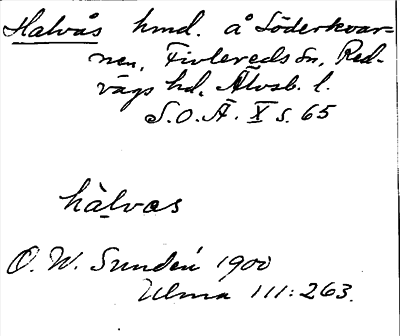 Halvås hmd. å Söderkvar=
nen, Fivlereds sn, Red-
vägs hd, Älvsb. l.
S.O.Ä. X s. 65
hàlvas
O. W. Sundén 1900
Ulma 111:263.